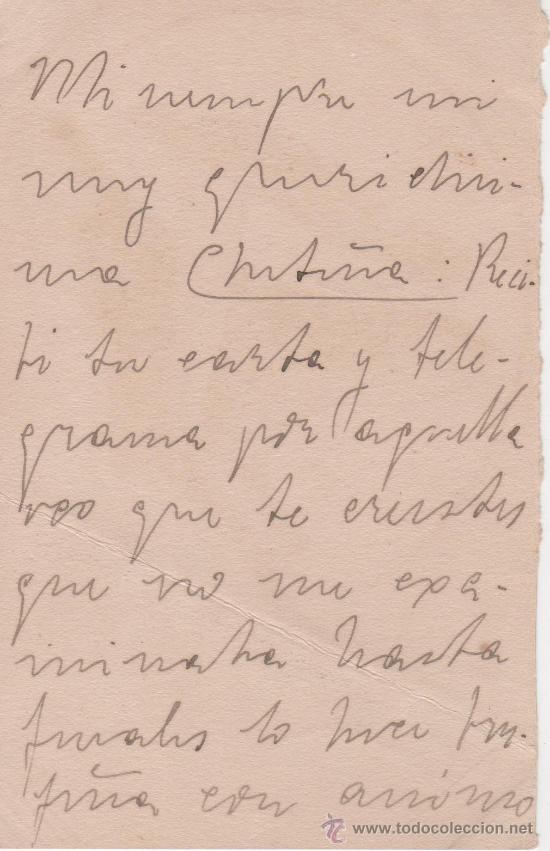 Mi siempre mi
muy queridisi-
ma Chitiña: Reci-
bi tu carta y tele-
grama por aquella
veo que te creistes
que no me exa-
minaba hasta
finales lo hice
con animo
www.todocoleccion.net